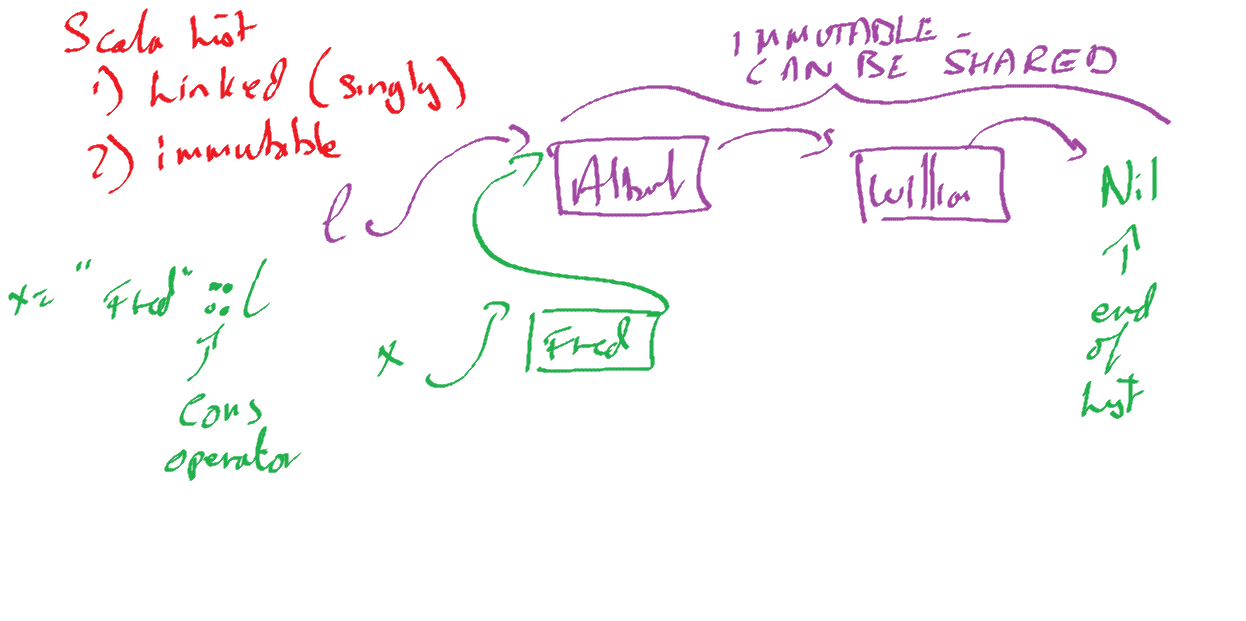 Scala List
1) Linked (singly)
2) immutable
IMMUTABLE -
CAN BE SHARED
l
Albert
William
Nil
x= "Fred" :: l
x
Fred
cons
operator
end
of
list